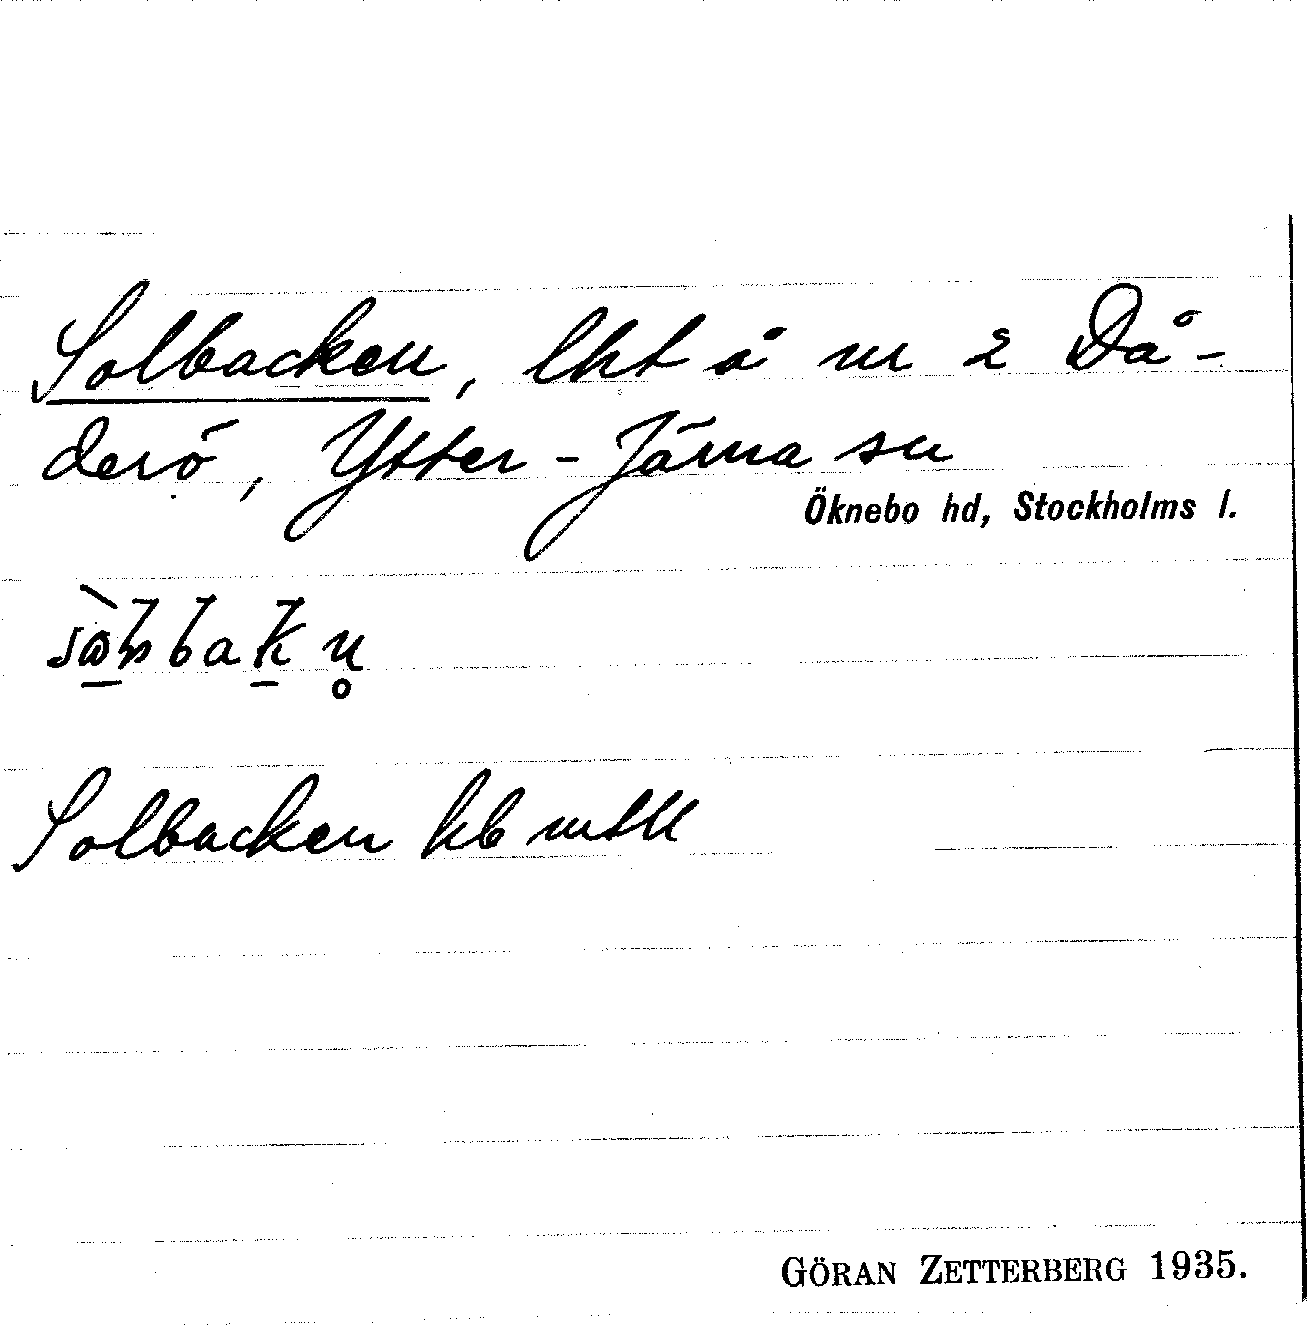 Solbacken, lht å nr 2 Då-
derö, Ytter-Järna sn
Öknebo hd, Stockholms l.
Solbacken kb mtll
GÖRAN ZETTERBERG 1935.